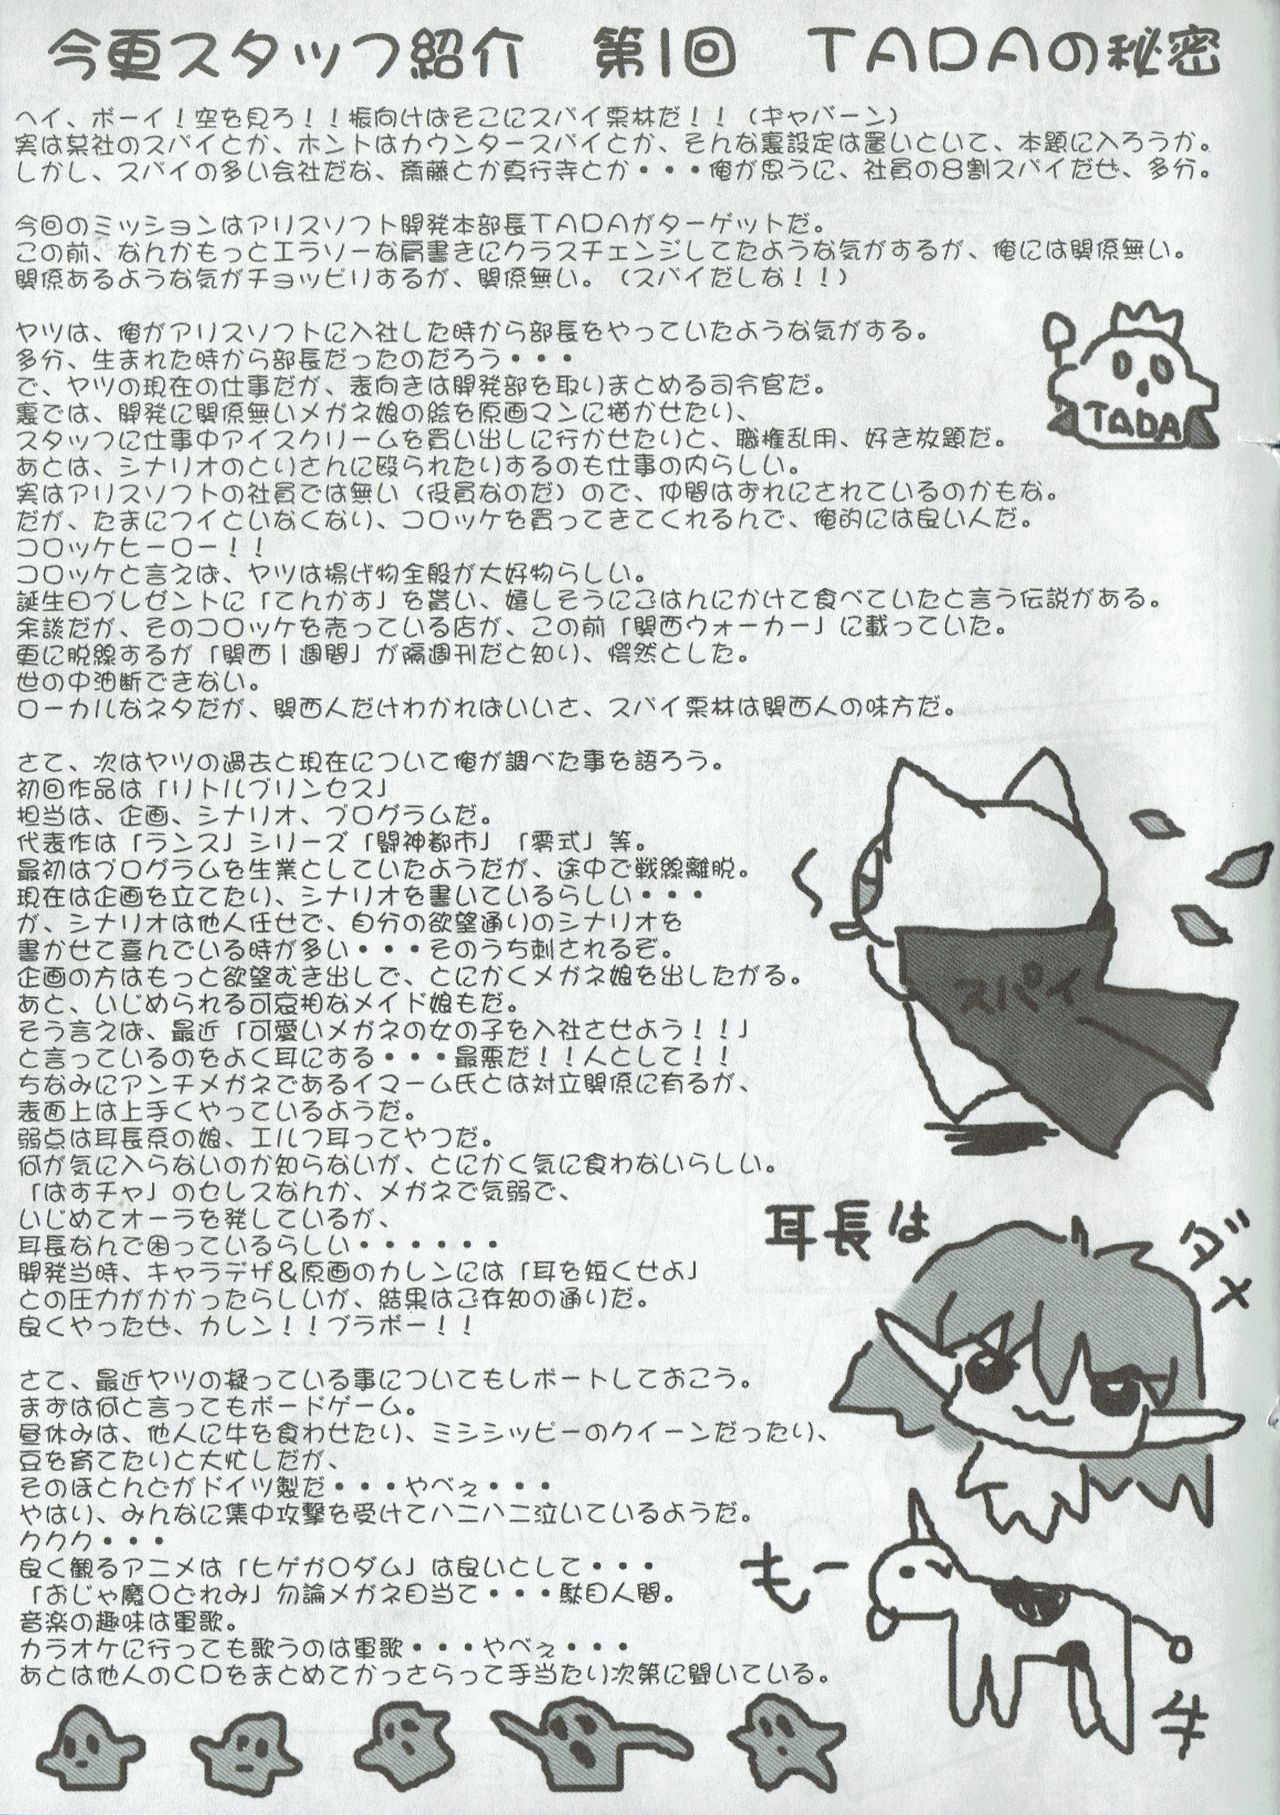 今更スタッフ紹介　第1回　TADAの秘密
ヘイ、ボーイ！空を見ろ！！振向けばそこにスパイ栗林だ！！（ギャバーン）
実は某社のスパイとか、ホントはカウンタースパイとか、そんな裏設定は置いといて、本題に入ろうか。
しかし、スパイの多い会社だな、斎藤とか真行寺とか・・・俺が思うに、社員の8割スパイだぜ、多分。
今回のミッションはアリスソフト開発本部長TADAがターゲットだ。
この前、なんかもっとエラソーな肩書きにクラスチェンジしてたような気がするが、俺には関係無い。
関係あるような気がチョッピリするが、関係無い。（スパイだしな！！）
ヤツは、俺がアリスソフトに入社した時から部長をやっていたような気がする。
多分、生まれた時から部長だったのだろう・・・
で、ヤツの現在の仕事だが、表向きは開発部を取りまとめる司令官だ。
裏では、開発に関係無いメガネ娘の絵を原画マンに描かせたり、
スタッフに仕事中アイスクリームを買い出しに行かせたりと、職権乱用、好き放題だ。
あとは、シナリオのとりさんに殴られたりするのも仕事の内らしい。
実はアリスソフトの社員では無い（役員なのだ）ので、仲間はずれにされているのかもな。
だが、たまにフイといなくなり、コロッケを買ってきてくれるんで、俺的には良い人だ。
コロッケヒーロー！！
コロッケと言えば、ヤツは揚げ物全般が大好物らしい。
誕生日プレゼントに「てんかす」を貰い、嬉しそうにごはんにかけて食べていたと言う伝説がある。
余談だが、そのコロッケを売っている店が、この前「関西ウォーカー」に載っていた。
更に脱線するが「関西1週間」が隔週刊だと知り、愕然とした。
世の中油断できない。
ローカルなネタだが、関西人だけわかればいいさ、スパイ栗林は関西人の味方だ。
TADA
さて、次はヤツの過去と現在について俺が調べた事を語ろう。
初回作品は「リトルプリンセス」
担当は、企画、シナリオ、プログラムだ。
代表作は「ランス」シリーズ「闘神都市」「零式」等。
最初はプログラムを生業としていたようだが、途中で戦線離脱。
現在は企画を立てたり、シナリオを書いているらしい・・・
が、シナリオは他人任せで、自分の欲望通りのシナリオを
書かせて喜んでいる時が多い・・・そのうち刺されるぞ。
企画の方はもっと欲望むき出しで、とにかくメガネ娘を出したがる。
あと、いじめられる可哀相なメイド娘もだ。
そう言えば、最近「可愛いメガネの女の子を入社させよう！！」
と言っているのをよく耳にする・・・最悪だ！！人として！！
ちなみにアンチメガネであるイマーム氏とは対立関係に有るが、
表面上は上手くやっているようだ。
弱点は耳長系の娘、エルフ耳ってやつだ。
何が気に入らないのか知らないが、とにかく気に食わないらしい。
「ぱすチャ」のセレスなんか、メガネで気弱で、
いじめてオーラを発しているが、
耳長なんで困っているらしい・・・・・・
開発当時、キャラデザ＆原画のカレンには「耳を短くせよ」
との圧力がかかったらしいが、結果はご存知の通りだ。
良くやったぜ、カレン！！ブラボー！！
スパイ
耳長は
ダメ
さて、最近ヤツの凝っている事についてもレポートしておこう。
まずは何と言ってもボードゲーム。
昼休みは、他人に牛を食わせたり、ミシシッピーのクイーンだったり、
豆を育てたりと大忙しだが、
そのほとんどがドイツ製だ・・・やべぇ・・・
やはり、みんなに集中攻撃を受けてハニハニ泣いているようだ。
ククク・・・
良く観るアニメは「ヒゲガ○ダム」は良いとして・・・
「おじゃ魔○どれみ」勿論メガネ目当て・・・駄目人間。
音楽の趣味は軍歌。
カラオケに行っても歌うのは軍歌・・・やべぇ・・・
あとは他人のCDをまとめてかっさらって手当たり次第に聞いている。
もー
牛